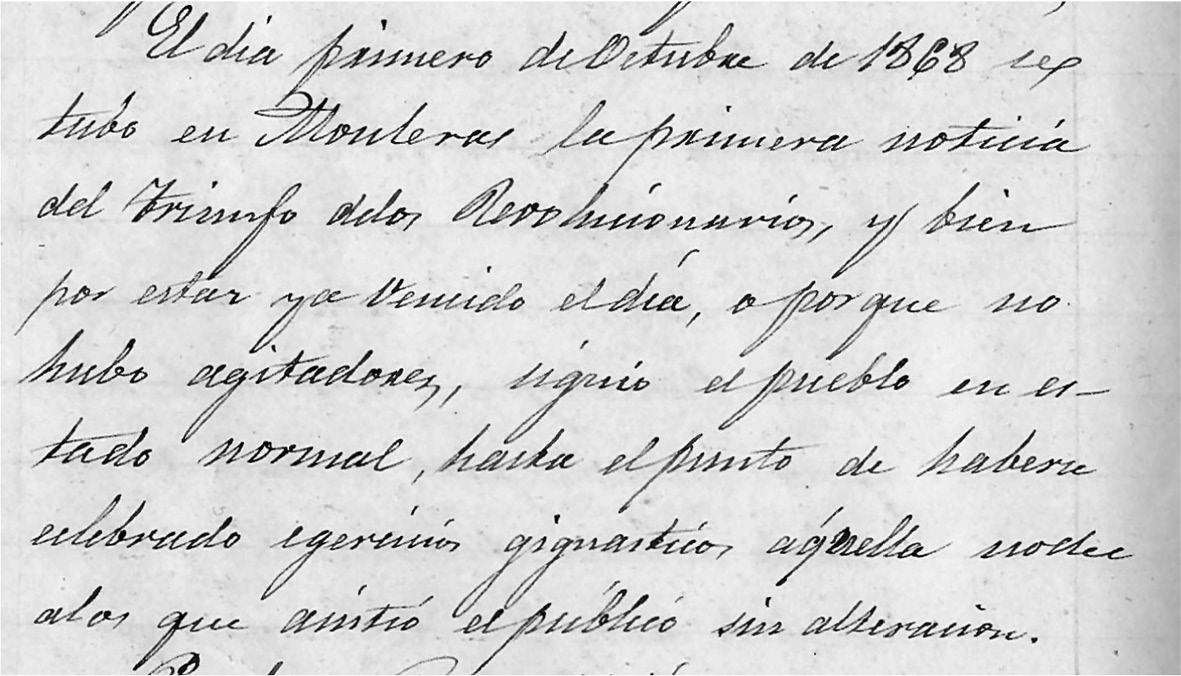 El dia primero de Octubre de 1868 se
tubo en Monleras la primera noticia
del triunfo delos Revolucionarios, y bien
por estar ya vencido el día, o porque no
hubo agitadores, siguió el pueblo en es-
tado normal, hasta el punto de haberse
celebrado egercicios gignasticos aquella noche
alos que asistió el público sin alteracion.